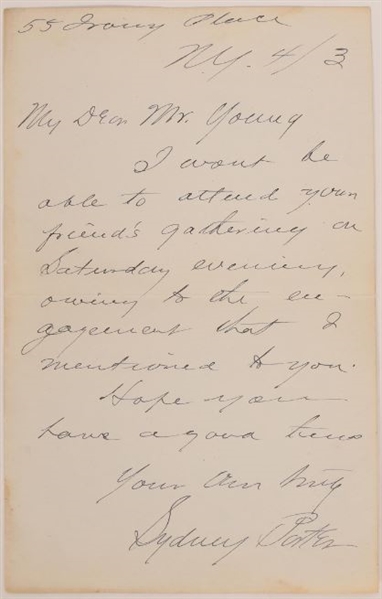 55 Irving Place
N.Y. 4/3
My Dear Mr. Young
I wont be
able to attend your
friend's gathering on
Saturday evening,
owing to the en-
gagement that I
mentioned to you.
Hope you
have a good time
Yours
Sydney Porter